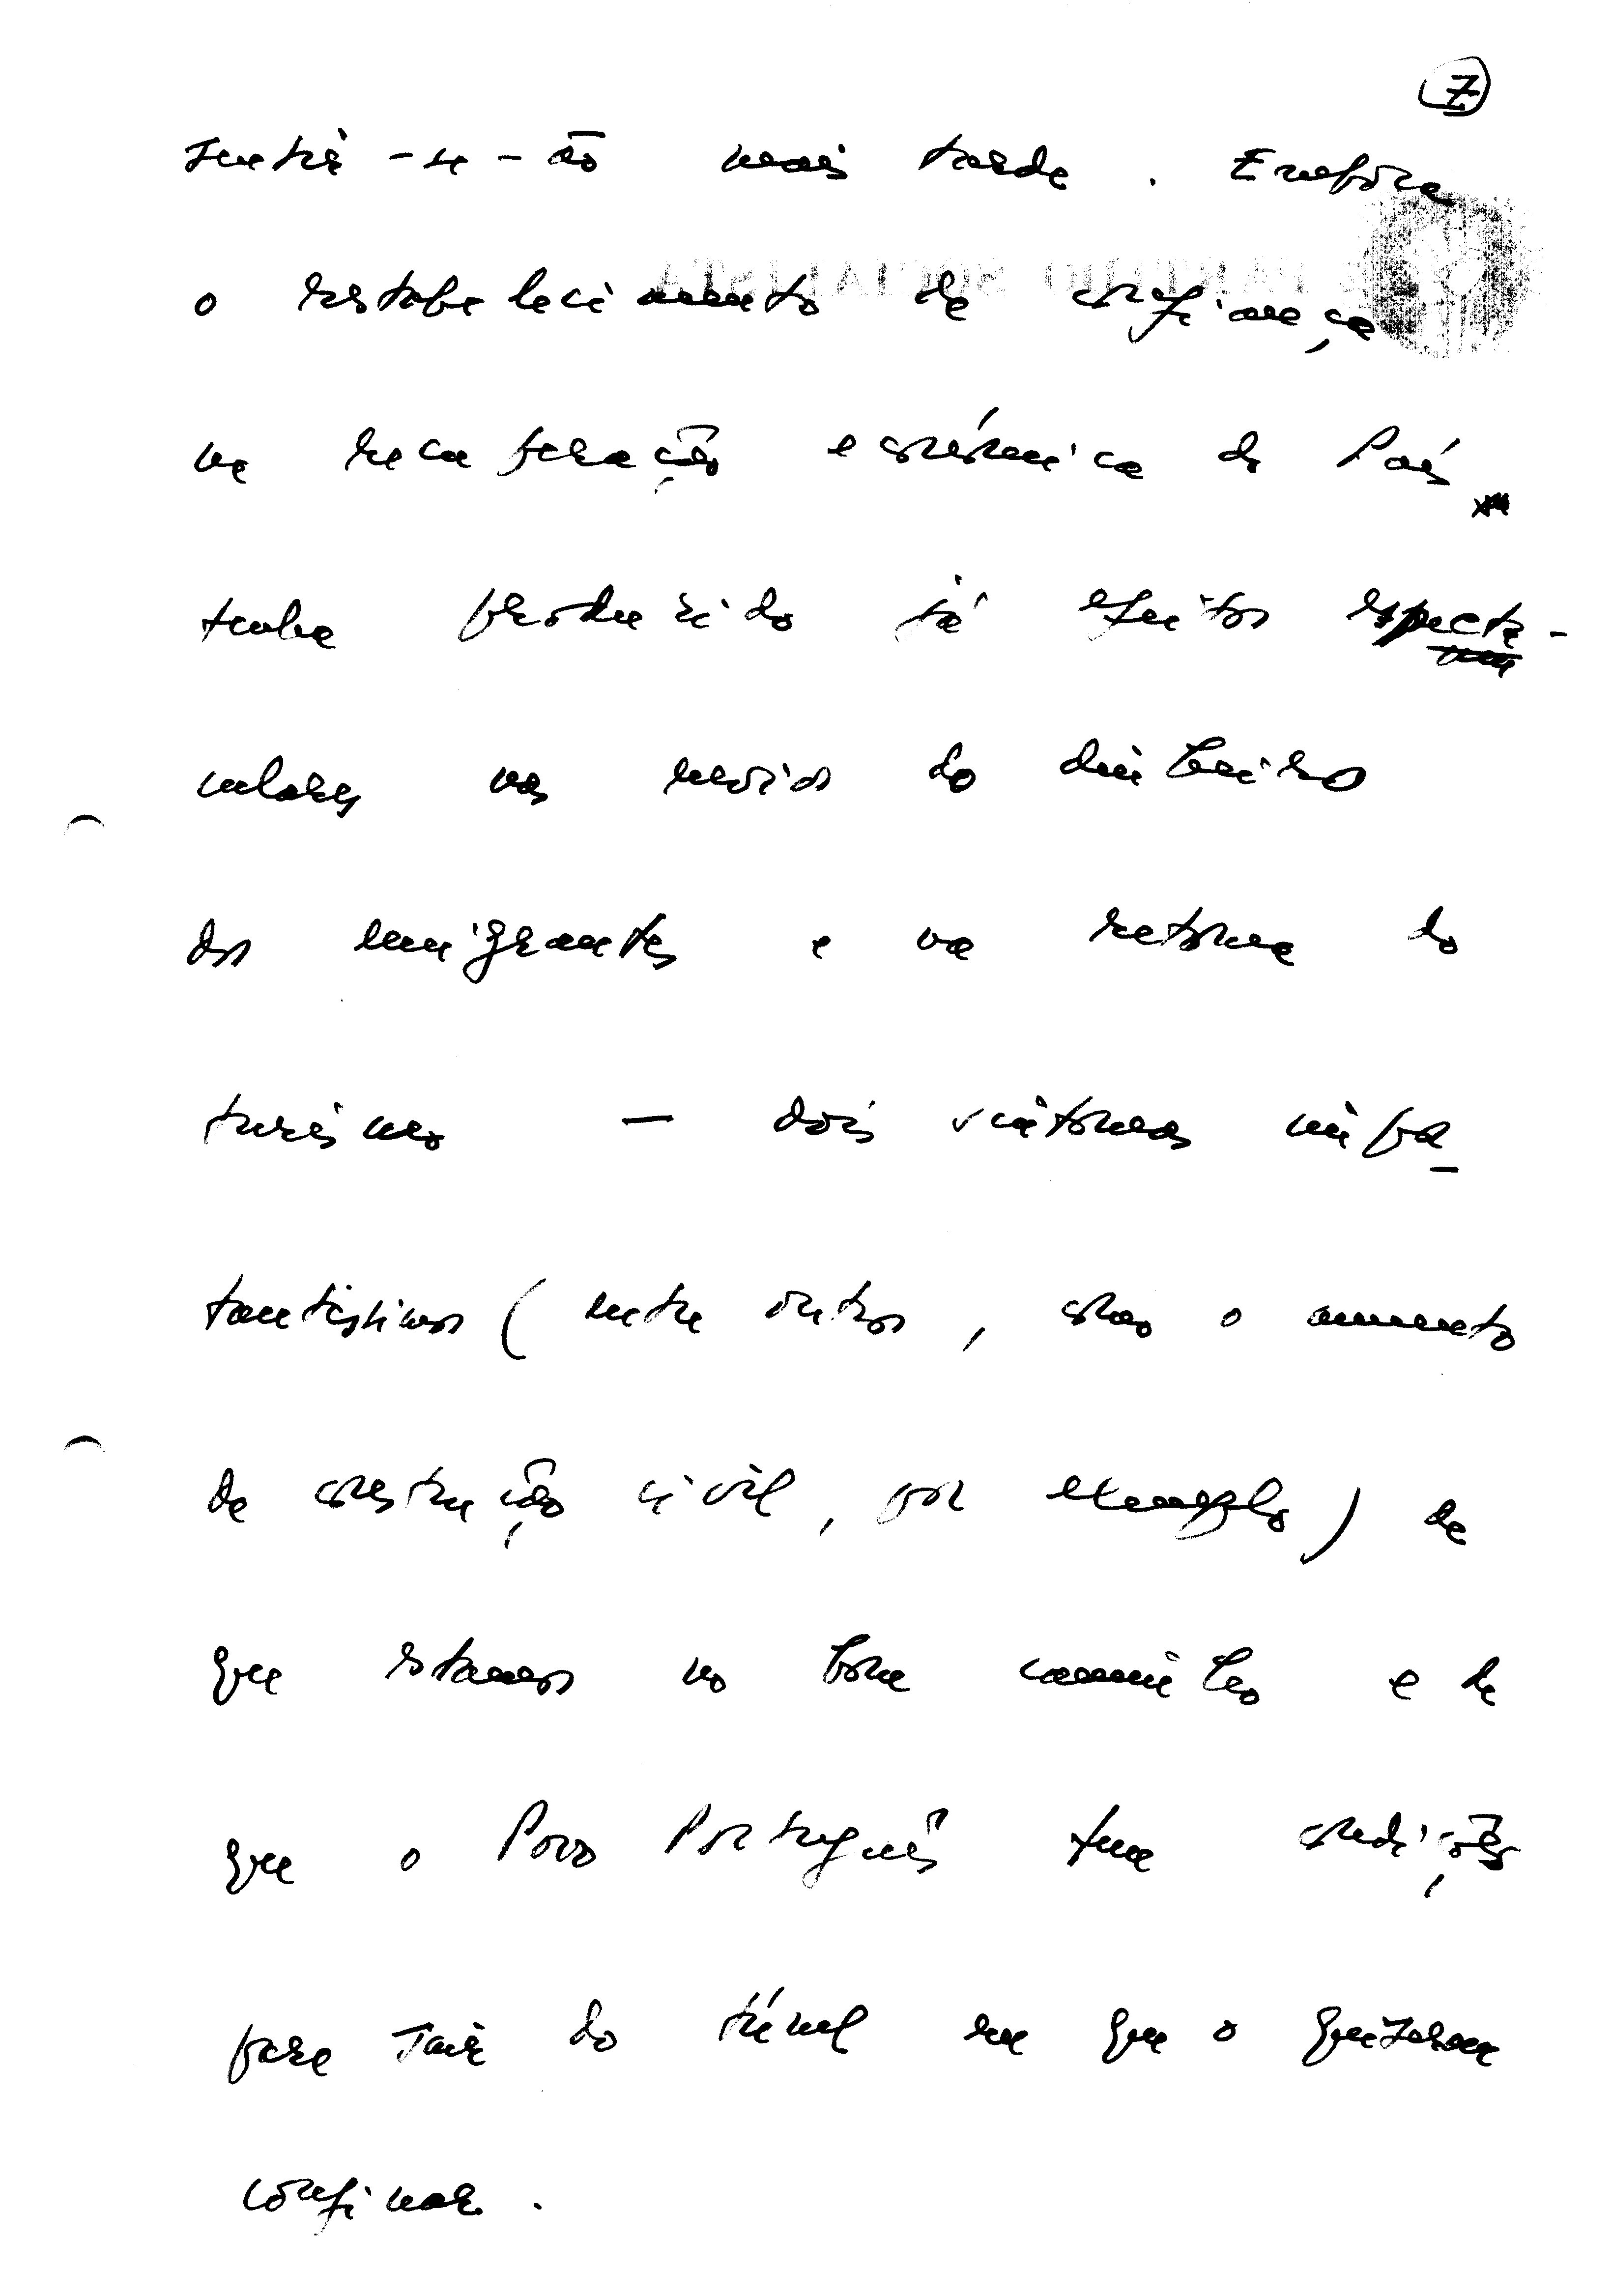 7
sentir-se-ão mais tarde. Embora
PARTIDO SOCIALISTA
o restabelecimento da confiança
na recuperação económica do País
tenha produzido já efeitos especta-
culares no envio do dinheiro
dos emigrantes e na retoma do
turismo — dois sintomas impor-
tantíssimos (entre outros, como o aumento
da construção civil, por exemplo) de
que estamos no bom caminho e de
que o Povo Português tem condições
para sair do túnel em que o quiseram
confinar.